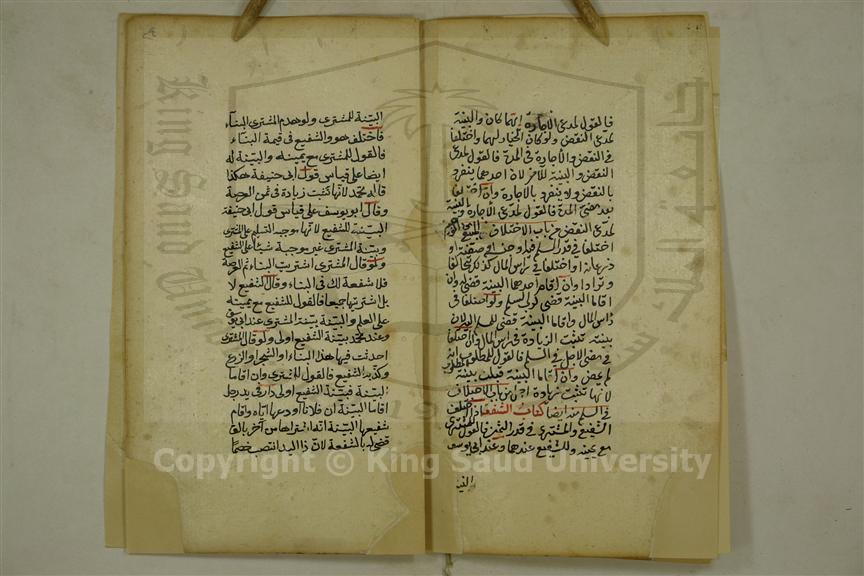 فالقول لمدعي الاجارة ايهما كان والبينة
لمدعي النقض ولو كان الخيار لهما واختلفا
في النقض والاجارة في المدة فالقول لمدعي
النقض والبينة للآخر لان احدهما ينفرد
بالنقض ولا ينفرد بالاجارة وان اختلفا
بعد مضي المدة فالقول لمدعي الاجارة والبينة
لمدعي النقض من باب الاختلاف
اختلفا في قدر السلم فيه او جنسه او صفته او
ذرعانه او اختلفا في رأس المال كذلك تحالفا
وترادا وان اقام احدهما البينة قضي وان
اقاما البينة قضي لولي السلم ولو اختلفا في
رأس المال واقاما البينة قضي للمسلم اليه لان
بينته تثبت الزيادة في رأس المال وان اختلفا
في مضي الاجل في السلم فالقول للمطلوب انه
لم يمض وان اقاما البينة قبلت بينة المطلوب
لانها تثبت زيادة اجل من باب الاختلاف
في السلم ايضا كتاب الشفعة اذا اختلف
الشفيع والمشتري في قدر الثمن فالقول للمشتري
مع يمينه وللشفيع عندهما وعند ابي يوسف
البينة
البينة للمشتري ولو هدم المشتري البناء
فاختلف هو والشفيع في قيمة البناء
فالقول للمشتري مع يمينه والبينة له
ايضا على قياس قول ابي حنيفة هكذا
قاله محمد لانها تثبت زيادة في ثمن العرصة
وقال ابو يوسف على قياس قول ابي حنيفة
البينة للشفيع لانها موجبة التسليم على المشتري
وبينة المشتري غير موجبة شيئا على الشفيع
ولو قال المشتري اشتريت البناء ثم العرصة
فلا شفعة لك في البناء وقال الشفيع لا
بل اشتريتهما جميعا فالقول للشفيع مع يمينه
على العلم والبينة بينة المشتري عند ابي يوسف
وعند محمد بينة الشفيع اولى ولو قال المشتري
احدثت فيها هذا البناء او الشجر او الزرع
وكذبه الشفيع فالقول للمشتري وان اقاما
البينة فبينة الشفيع اولى دار في يد رجل
اقاما البينة ان فلانا اودعها اياه واقام
شفيعها البينة انه اشتراها من آخر بالف
قضي له بالشفعة لان ذا اليد انتصب خصما
Copyright © King Saud University